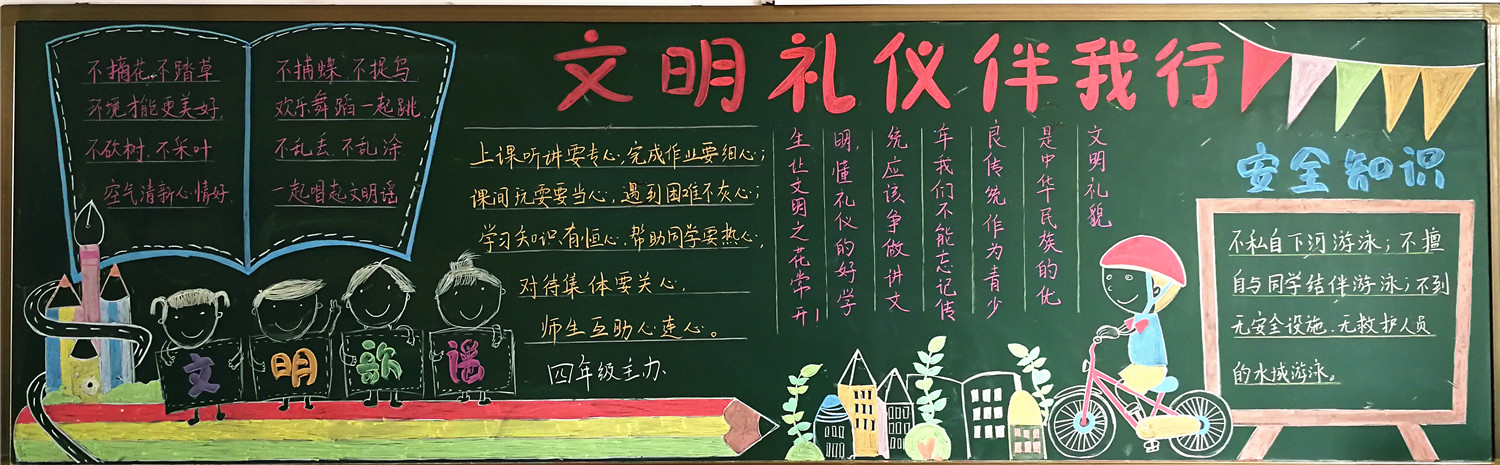 文明礼仪伴我行
不摘花、不踏草
环境才能更美好,
不砍树、不采叶
空气清新心情好.
不捕蝶、不捉鸟
欢乐舞蹈一起跳
不乱丢、不乱涂
一起唱起文明谣
文明歌谣
上课听讲要专心,完成作业要细心;
课间玩耍要当心,遇到困难不灰心;
学习知识有恒心,帮助同学要热心,
对待集体要关心,
师生互助心连心。
四年级主办
文明礼貌
是中华民族的优
良传统作为青少
年我们不能忘记传
统应该争做讲文
明,懂礼仪的好学
生让文明之花常开!
安全知识
不私自下河游泳;不擅
自与同学结伴游泳;不到
无安全设施、无救护人员
的水域游泳。